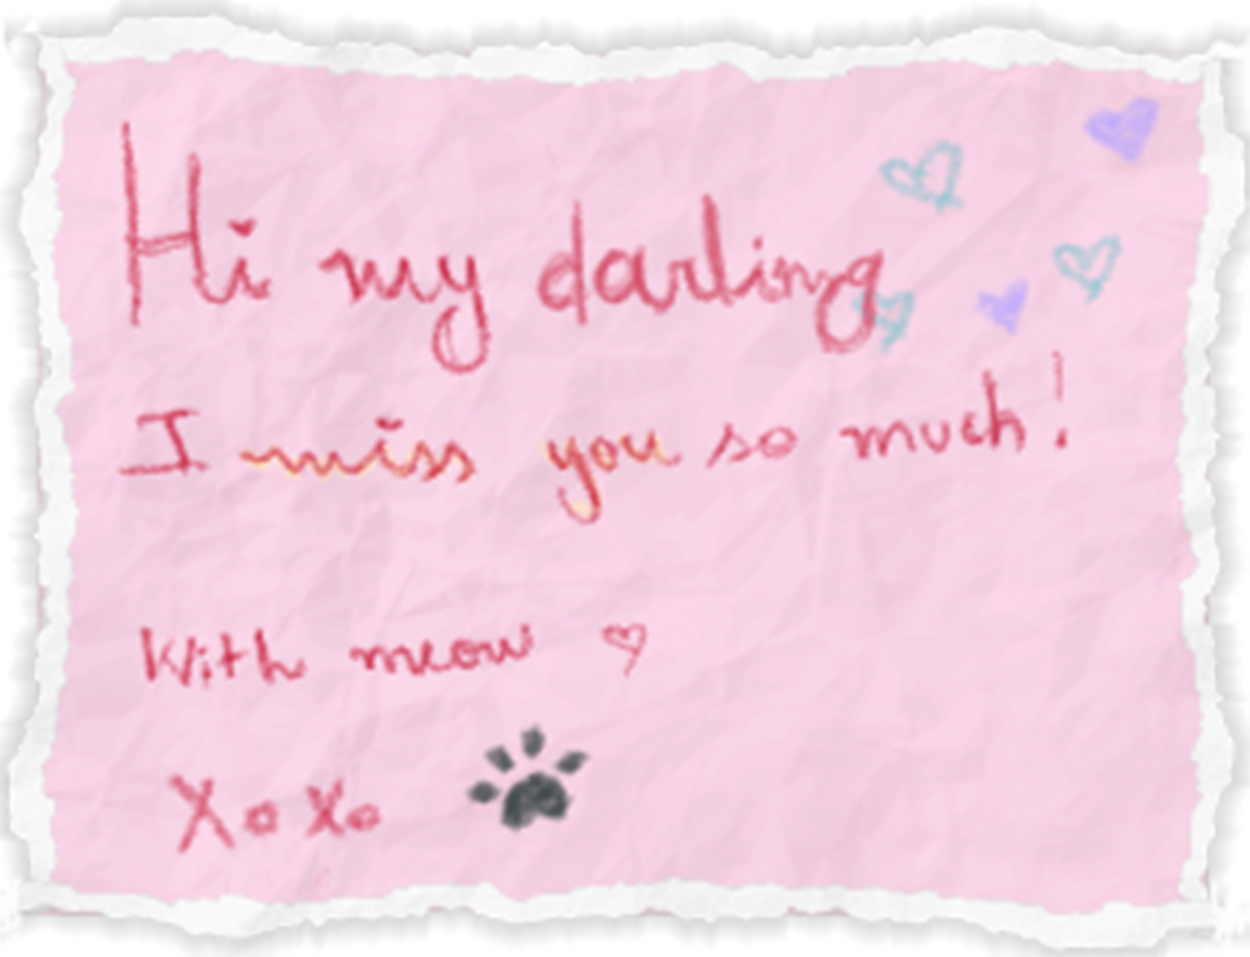 Hi my darling
I miss you so much!
With meow ♡
XoXo